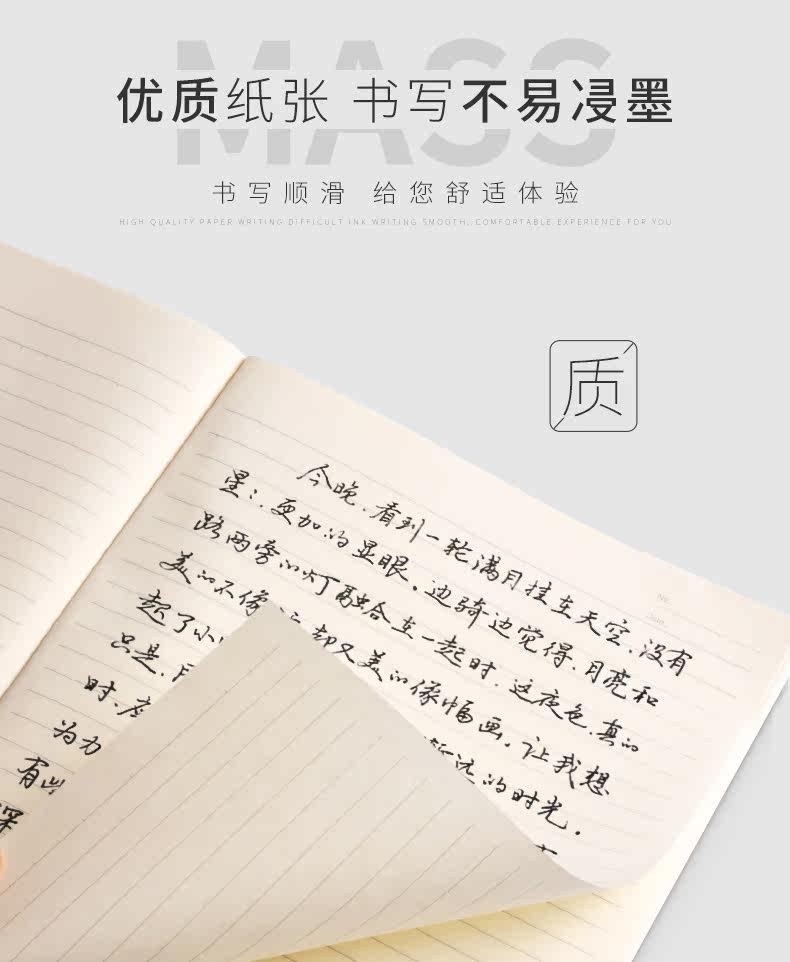 MASS
优质纸张 书写不易浸墨
书写顺滑 给您舒适体验
HIGH QUALITY PAPER WRITING DIFFICULT INK WRITING SMOOTH, COMFORTABLE EXPERIENCE FOR YOU
质
今晚.看到一轮满月挂在天空.没有
星:.更加的显眼.边骑边觉得.月亮和
路两旁的灯融合在一起时.这夜色.真的
美的不像 却又美的像幅画.让我想
起了小 远的时光.
只是.
时.
为力
有些
深